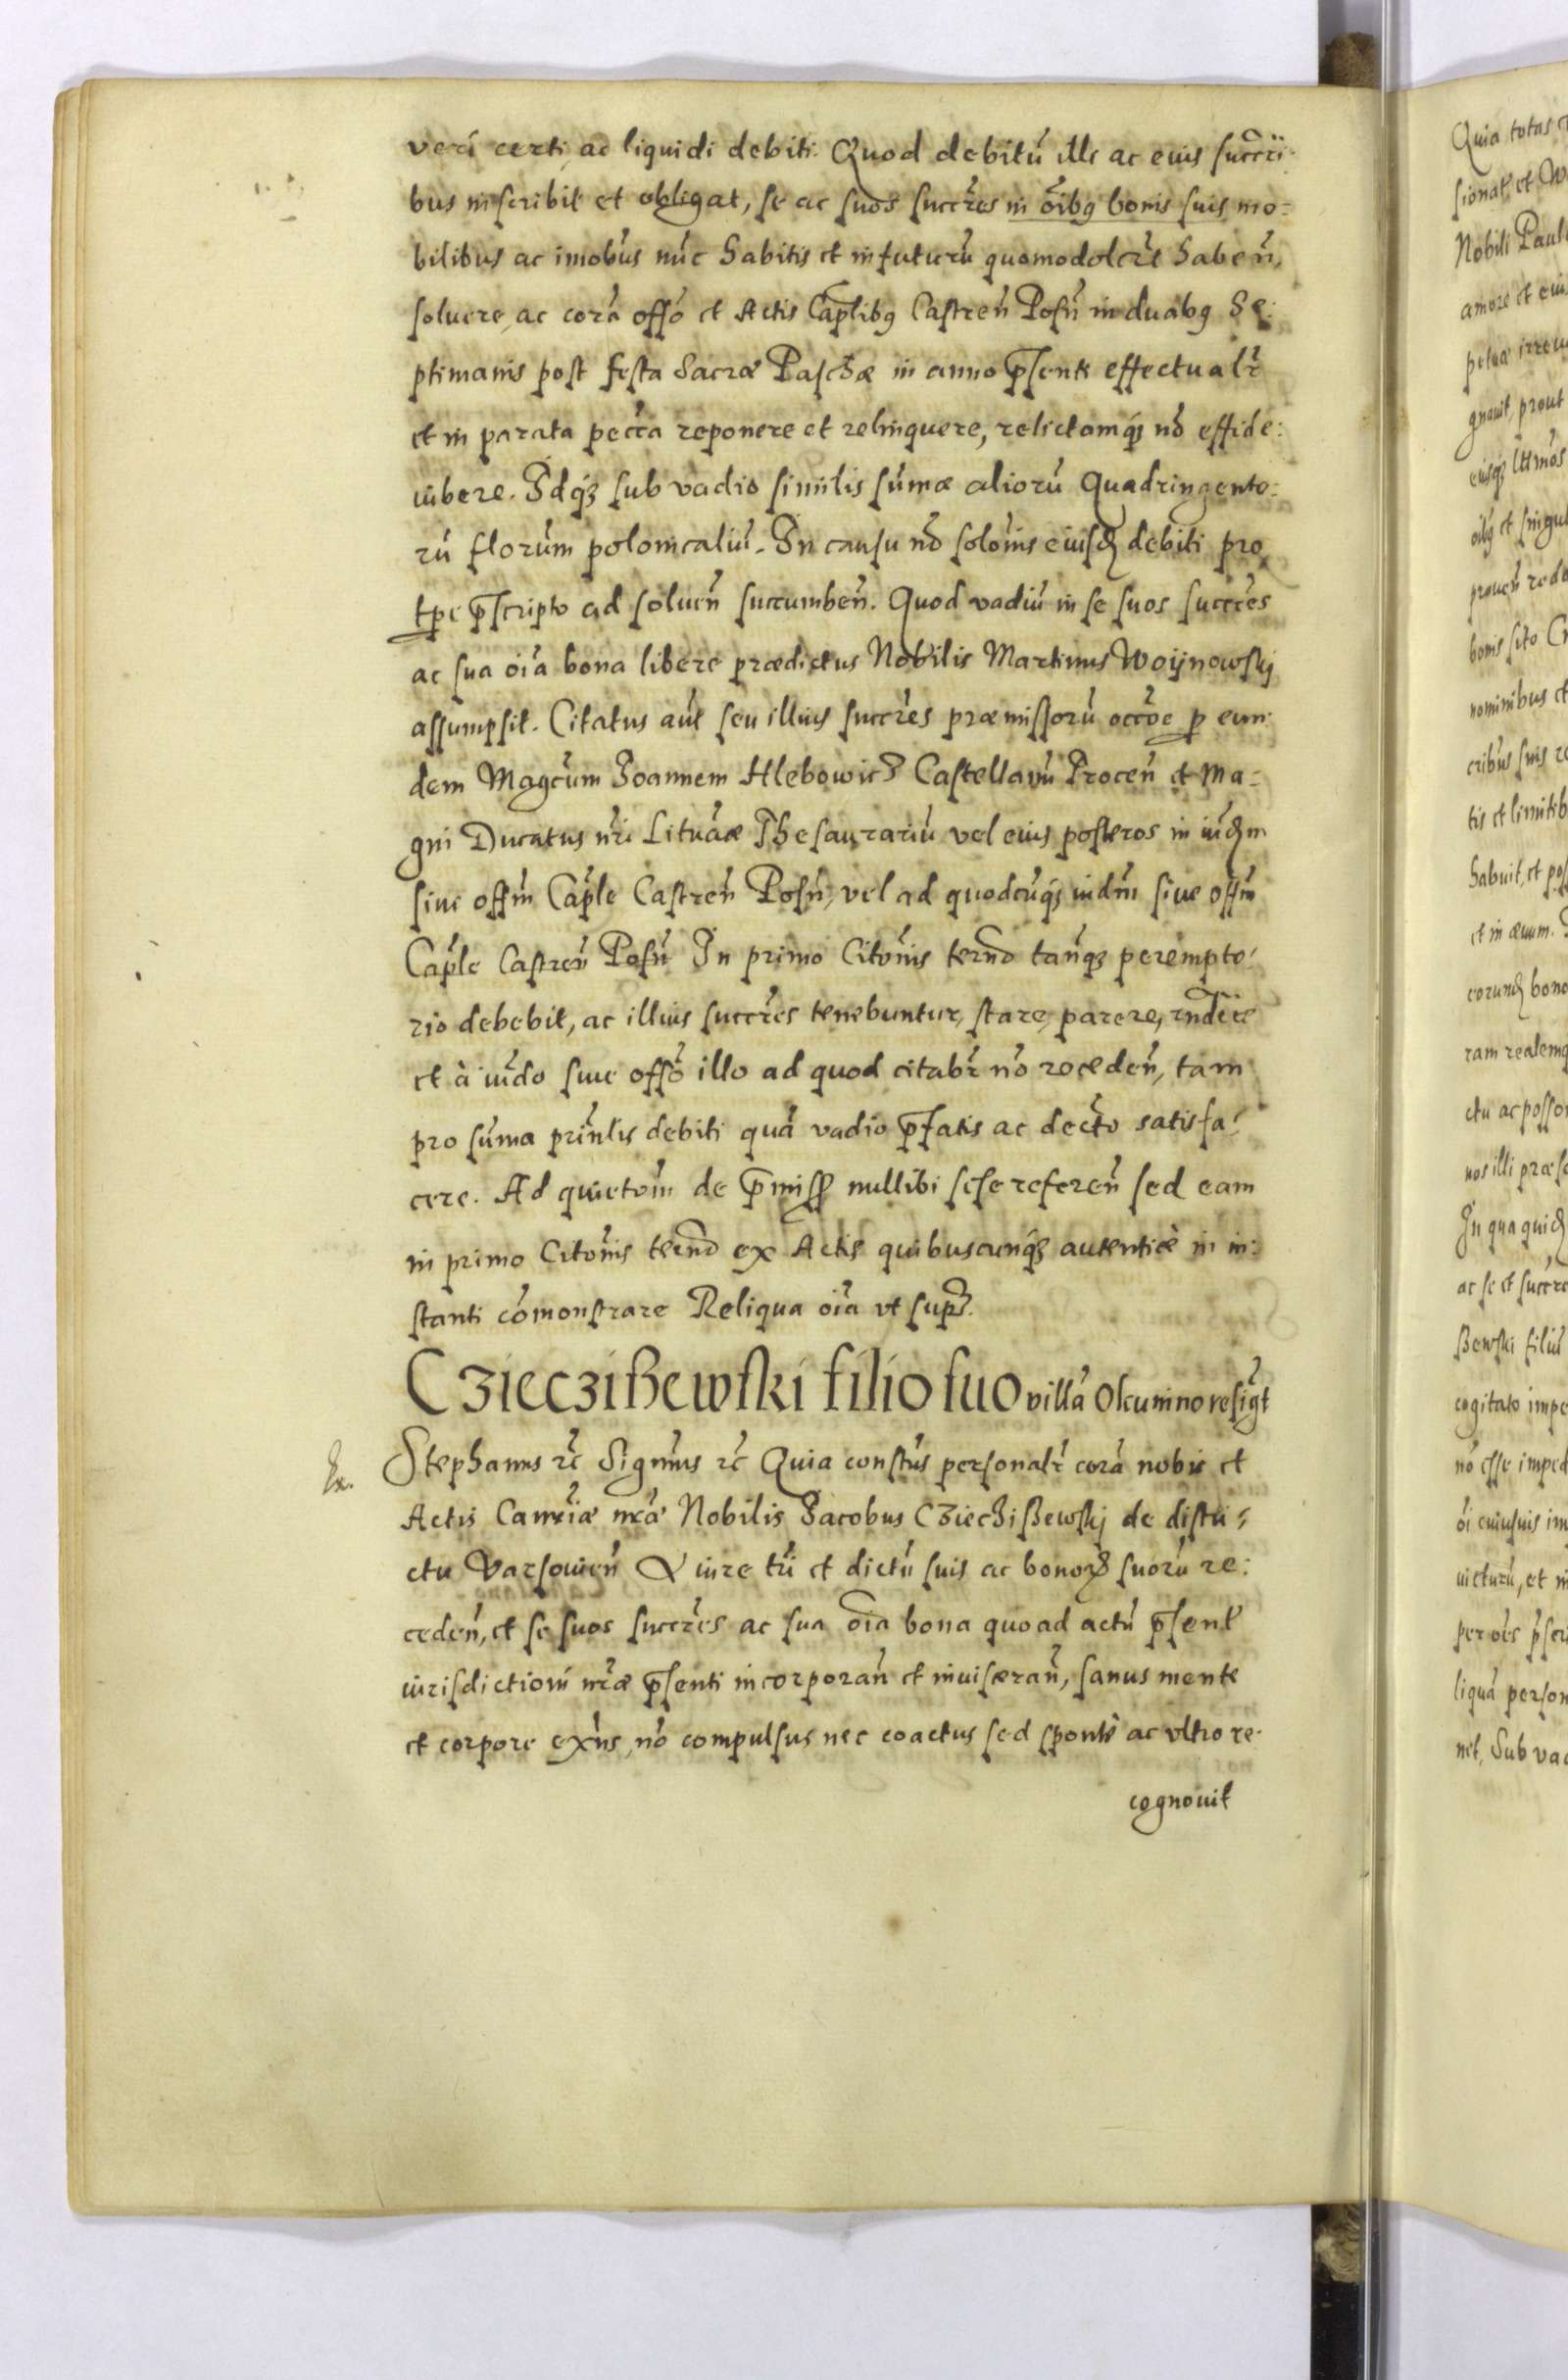 veri certi ac liquidi debiti. Quod debitū ille ac euis succri-
bus inscribit et obligat, se ac suos succr̄es in oībq bonis suis mo=
bilibus ac imobūs nūc habitis et in futurū quomodolcr̄t habeń,
soluere, ac corā offō et Actis Cap̄libq Castreń Posń in duabq Se:
ptimanis post festa Sacræ Paschæ in anno p̄senti effectualr̄
et in parata pecc̄a reponere et relinquere, relictamq̨ nō effide:
iubere. Idq̨ sub vadio similis sūmæ aliorū Quadringento:
rū florūm polonicaliū. In causu nō solōnis eiusd̨ debiti pro
tp̄e p̄scripto ad solueń succumbeń. Quod vadiū in se suos succr̄es
ac sua oīa bona libere prædictus Nobilis Martinus Woijnowskj
assumpsit. Citatus aūt seu illius succr̄es præmissorū occōe p eun:
dem Magcūm Joannem Hlebowicz Castellanū Troceń et Ma=
gni Ducatus nr̄i Lituāæ Thesaurariū vel eius posteros in iūd̨m
siue offm̄ Cap̄le Castreń Posń, vel ad quodcūq̨ iudm̄ siue offm̄
Cap̄le Castreń Posń In primo Citōnis ternō tanq̨ perempto-
rio debebit, ac illius succr̄es tenebuntur, stare, parere, rn̄dēre
et à iūdo siue offō illo ad quod citabr̄ nō recedeń, tam
pro sūma prinl̄is debiti quā vadio p̄fatis ac decr̄to satisfa-
cere. Ad quietōm de p̄miss nullibi sese refereń sed eam
in primo Citōnis ternō ex Actis quibuscunq̨ autenticè in in:
stanti cōmonstrare Reliqua oīa vt supr̄.
Czieczißewski filio suo villā Okunino resigt̄
Stephanus rc̄ Signmūs rc̄ Quia constūs personalr̄ corā nobis et
Actis Cancr̄iæ nr̄æ Nobilis Jacobus Cziecżißewskj de distri=
ctu Varsouień A iure tr̄i et dictū suis ac bonorȝ suorū re:
cedeń, et se suos succr̄es ac sua oīa bona quoad actū p̄sent
iurisdictioni nr̄æ p̄senti incorporań et inuiscerań, sanus mente
et corpore exn̄s, nō compulsus nec coactus sed spontè ac vltro re-
cognouit